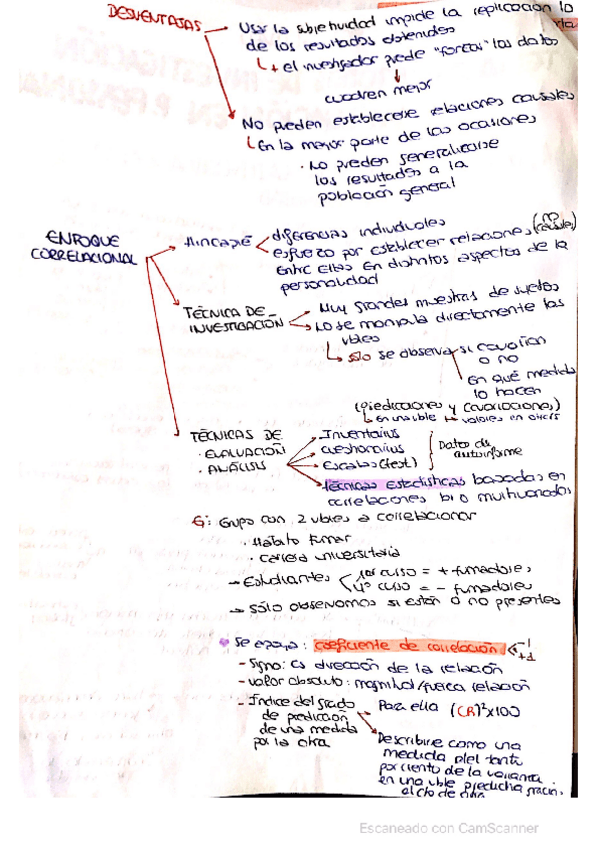 DESVENTAJAS
Usar la subjetividad impide la replicación
de los resultados obtenidos
+ el investigador puede "forzar" los datos
cuadren mejor
No pueden establecerse relaciones causales
En la mayor parte de las ocasiones
· No pueden generalizarse
los resultados a la
población general
ENFOQUE
CORRELACIONAL
Hincapié
diferencias individuales
esfuerzo por establecer relaciones (no causales)
entre ellas en distintos aspectos de la
personalidad
TÉCNICA DE
INVESTIGACIÓN
Muy grandes muestras de sujetos
No se manipula directamente las
vbles
sólo se observa si covarían
o no
En qué medida
lo hacen
(predicciones y covariaciones)
en una vble valores en otras
TÉCNICAS DE
· EVALUACIÓN
· ANÁLISIS
Inventarios
cuestionarios
Escalas (test)
Datos de
autoinforme
Técnicas estadísticas basadas en
correlaciones bi o multivariadas
Ej: Grupo con 2 vbles a correlacionar
· Hábito fumar
· carrera universitaria
- Estudiantes
1er curso = + fumadores
4º curso = - fumadores
- Sólo observamos si están o no presentes
Se apoya: coeficiente de correlación
-1
+1
- Signo: es dirección de la relación
- valor absoluto: magnitud/fuerza relación
- Índice del grado
de predicción
de una medida
por la otra
Para ella (CR)²x100
Describirse como una
medida del tanto
por ciento de la varianza
en una vble predicha
Escaneado con CamScanner